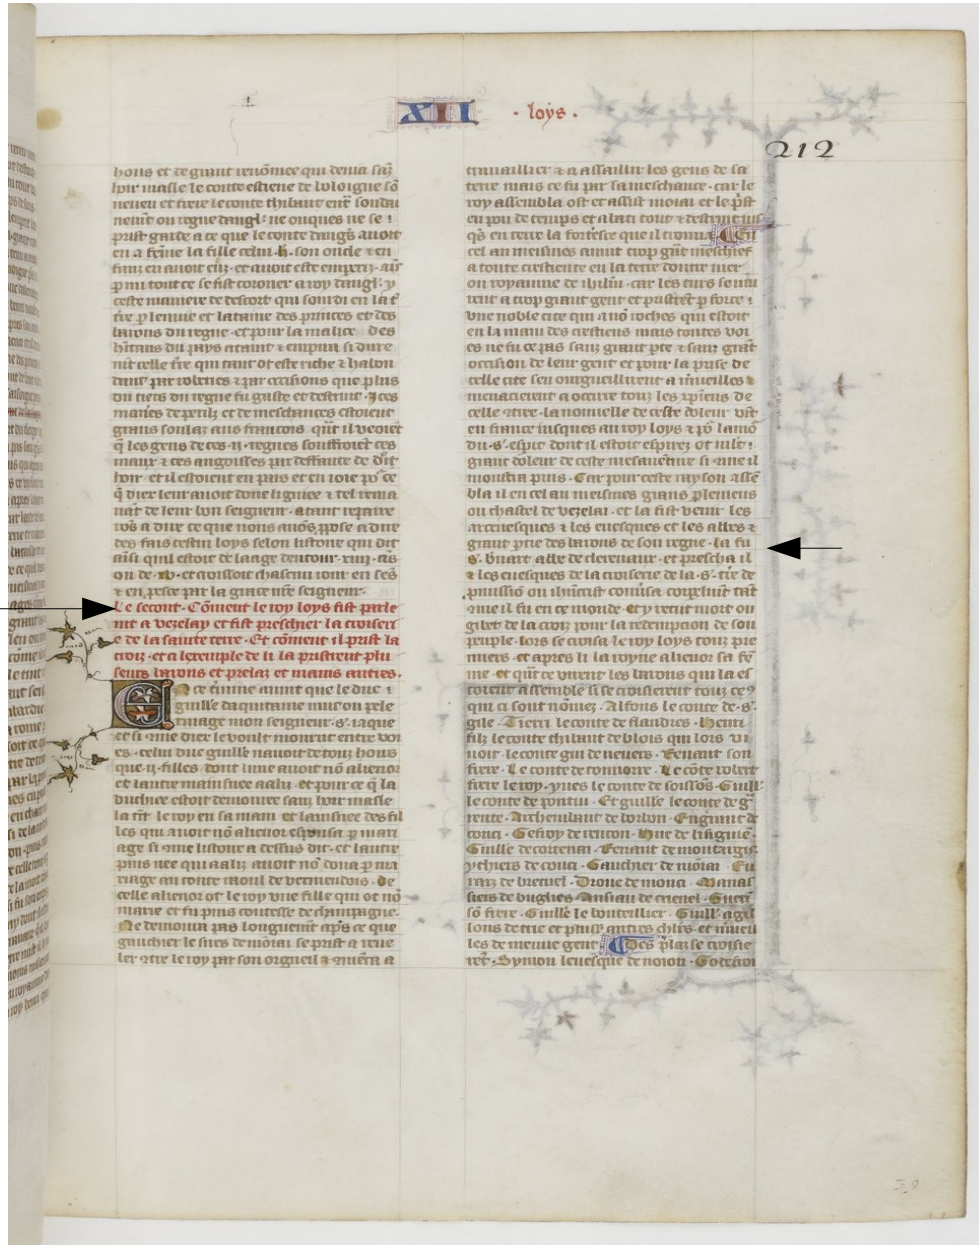 XII
· loys ·
212
bons et de grant renommee qui dema sāz
hoir masle le conte estiene de boloigne sō
neveu et frere le conte thibaut
ou regne dangl: ne onques ne se
prist garde a ce que le conte dangs avoit
en a feme la fille celui .h. son oncle ⁊ en
par mi tout ce se fist coroner a roy dangl.
ceste maniere de descort qui sourdi en la
des princes et des
barons du regne. et pour la malice des
celle tre qui tant ot este riche ⁊ habon
dant par roberies ⁊ par occisions que plus
du tiers du regne fu gaste et destruit.
manes de perilz et de meschances estoient
grans soulaz aus francois. qnt il veoiēt
q les gens de ces .ii. regnes souffroiēt ces
maux ⁊ ces angoisses par deffaute de droit
hoir. et il estoient en pais et en ioie po ce
q diex leur avoit done lignee ⁊ tel rema
nāt de leur bon seigneur. atant
a dire ce que nous avōs ppose a dire
des fais cestui loys selon listoire qui dit
aīsi quil estoit de laage dentour .xiiii. ās
ou de .xv. et croissoit chascun iour en sēs
⁊ en presce par la grace nre seigneur.
Le secont. Cōment le roy loys fist parle
mt a vezelay et fist preschier la croiseri
e de la sainte terre. Et cōment il prist la
croiz. et a lexemple de li la pristrent plu
seurs barons et prelaz et mains autres.
En ce tmine avint que le duc
guille daquitaine
rinage mon seigneur .s. iaque
et si que diex le voult mourut entre voi
es. celui duc guille navoit de touz hoirs
que .ii. filles dont lune avoit nō alienor
et lautre mainsnee aaliz. et pour ce q la
duchiee estoit demoree sanz hoir masle
la tīt le roy en sa main et lainsnee des fil
les qui avoit nō alienor espousa p mari
age si que listoire a dessus dit. et lautre
puis nee qui aaliz avoit nō dona p ma
riage au conte raoul de vermendois. De
celle alienor ot le roy une fille qui ot nō
marie et fu puis contesse de champagne.
Ne demoura pas longuemt aps ce que
gauchier le sires de se prist a reve
ler ⁊tre le roy par son orgueil ⁊ a
travaillier ⁊ a assaillir les gens de sa
terre mais ce fu par sa meschance. car le
roy assembla ost et assist et le pst
en pou de temps et alan tout ⁊ destruit
en terre la fortesce que il trouva. En
cel an meismes avint trop gnt meschief
a toute crestiente en la terre doutre mer
ou royaume de ihrlm. car les turs
vint a trop grant gent et pristrēt p force
une noble cite qui a nō roches qui estoit
en la main des crestiens mais toutes voi
es ne fu ce pas sanz grant pte ⁊ sanz grāt
occision de leur gent et pour la prise de
celle cite sen ourgueillirent a mveilles ⁊
menacierent a occirre touz les xpiens de
celle ⁊tree. la nouvelle de ceste doleur vīt
en france iusques au roy loys ⁊ po lamo
du .s. esprit dont il estoit espirez ot
grant doleur de ceste mesaventure si que il
moustra puis. Car pour ceste rayson assē
bla il en cel an meismes grans plemens
ou chastel de vezelai. et la fist venir les
arcevesques ⁊ les evesques et les abbes ⁊
grant ptie des barons de son regne. la fu
.s. bnart abbe de clerevaux. et prescha il
⁊ les evesques de la croiserie de la .s. tre de
pmission ou ihucrist cōversa corpelmt tāt
que il fu en ce monde. et y recut mort ou
gibet de la croiz pour la redempcion de son
peuple. lors se croisa le roy loys touz pre
miers. et apres li la royne alienor sa fē
me. et qnt ce virent les barons qui la es
toient assemble si se croisierent touz ce
qui ci sont nōmez. Alfons le conte de .s.
gile. Tierri le conte de flandres. Henri
filz le conte thibaut de blois qui lors vi
voit. le conte gui de nevers. Renaut son
frere. Le conte de tonnorre. Le cōte robert
frere le roy. yves le conte de soissōs. Guill
le conte de pontiu. Et guille le conte de g
rente. Archembaut de borbon. Engrant de
couci. Gefroy de rencon. Hue de lisignie.
Guille de cortenai. Renaut de montargis
ythiers de couci. Gauchier de
de breteul. Droue de mouci. Manas
siers de buglies Ansiau de creenel. Gueri
sō frere. Guille le bouteillier. Guill
lons de trie et plusrs autres chlrs. et mvei
les de menue gent. Des plaz se croisie
rēt. Symon levesque de noion. Godefroi
39